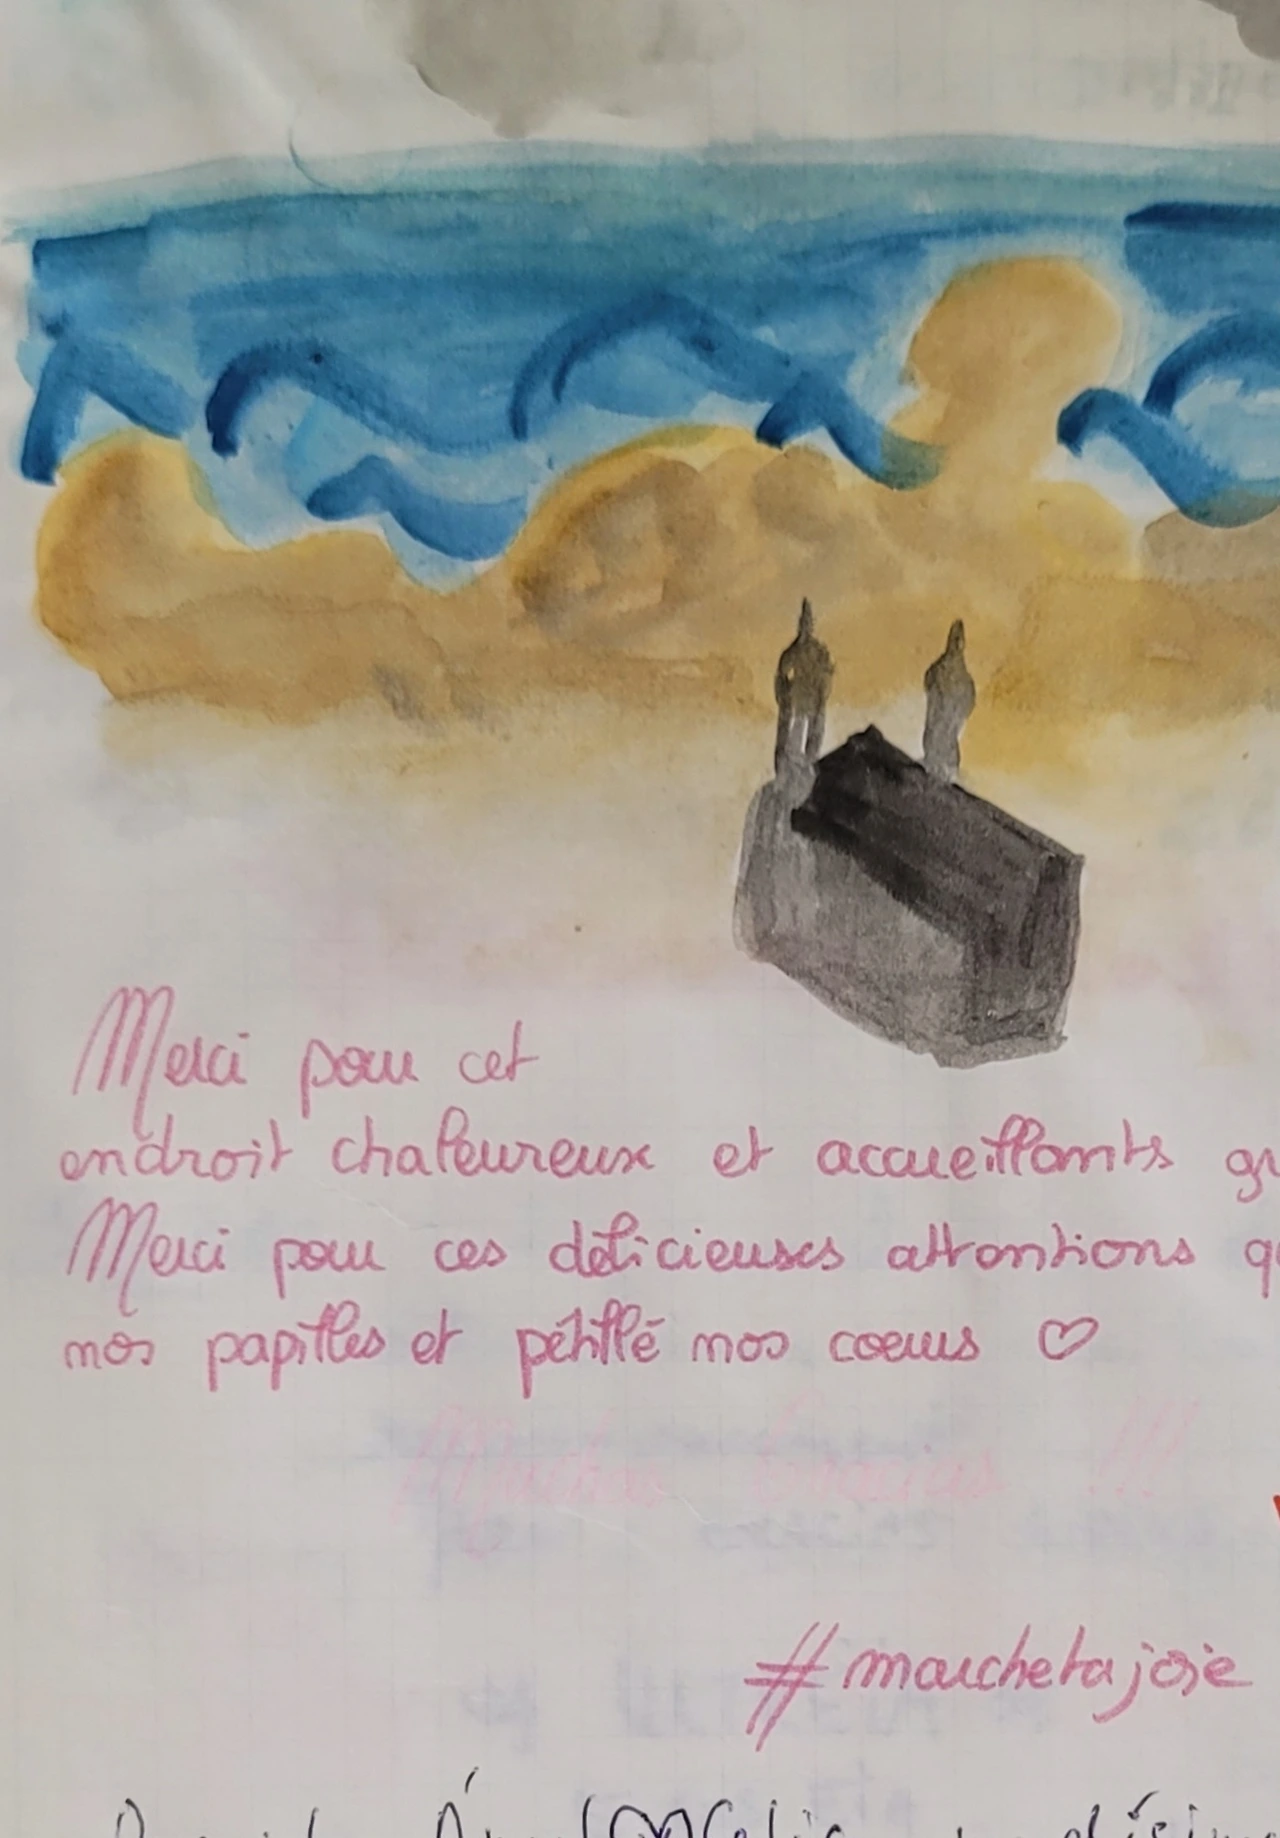 Merci pour cet
endroit chaleureux et accueillants
Merci pour ces délicieuses attentions
nos papilles et pétillé nos coeurs ♡
Muchas Gracias !!!
#marchetajoie